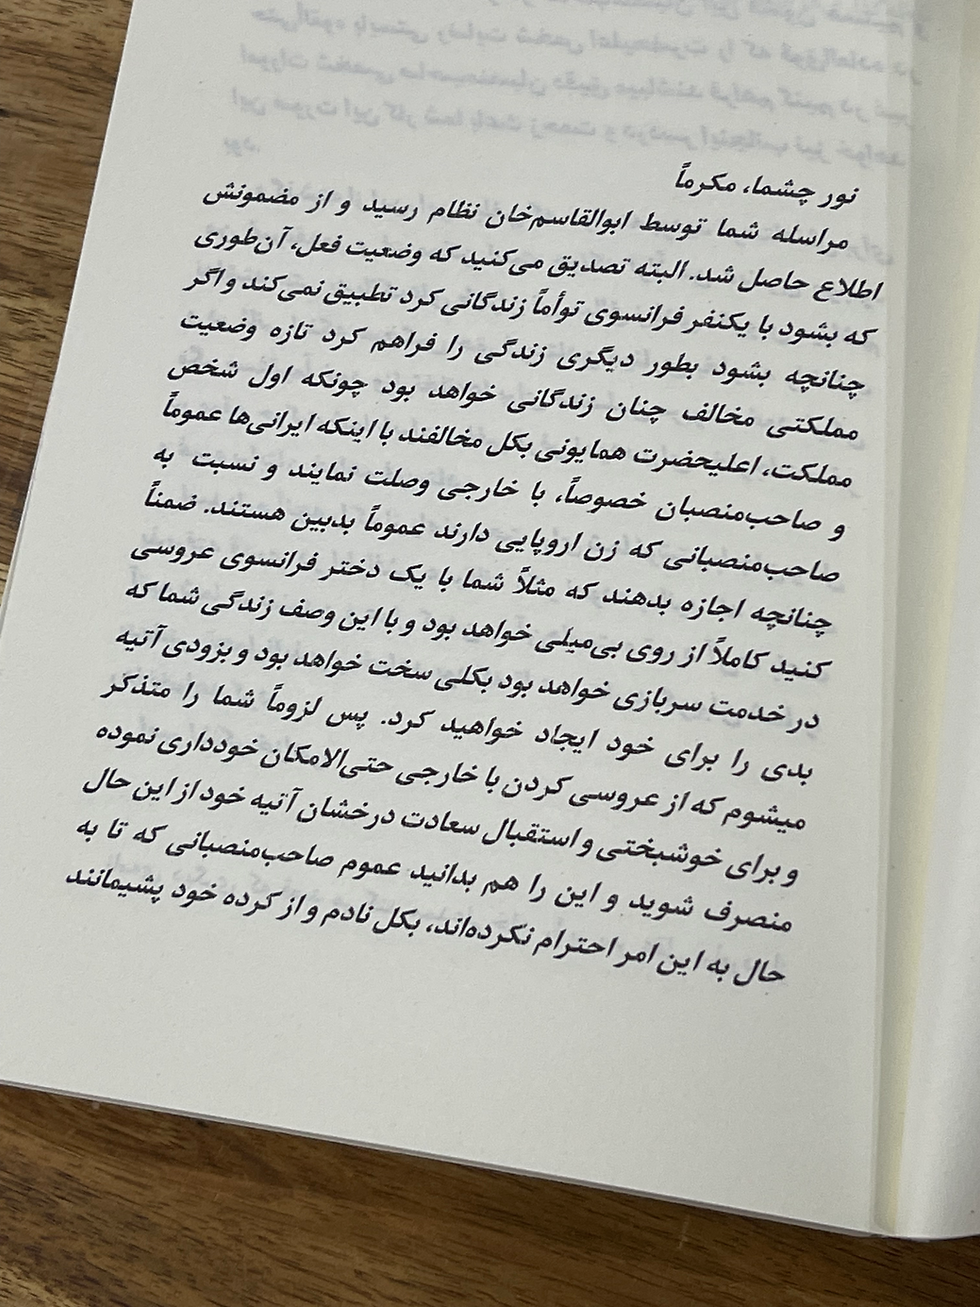 نور چشما، مکرماً
مراسله شما توسط ابوالقاسم‌خان نظام رسید و از مضمونش
اطلاع حاصل شد. البته تصدیق می‌کنید که وضعیت فعل، آن‌طوری
که بشود با یکنفر فرانسوی توأماً زندگانی کرد تطبیق نمی‌کند و اگر
چنانچه بشود بطور دیگری زندگی را فراهم کرد تازه وضعیت
مملکتی مخالف چنان زندگانی خواهد بود چونکه اول شخص
مملکت، اعلیحضرت همایونی بکل مخالفند با اینکه ایرانی‌ها عموماً
و صاحب‌منصبان خصوصاً، با خارجی وصلت نمایند و نسبت به
صاحب‌منصبانی که زن اروپایی دارند عموماً بدبین هستند. ضمناً
چنانچه اجازه بدهند که مثلاً شما با یک دختر فرانسوی عروسی
کنید کاملاً از روی بی‌میلی خواهد بود و با این وصف زندگی شما که
در خدمت سربازی خواهد بود بکلی سخت خواهد بود و بزودی آتیه
بدی را برای خود ایجاد خواهید کرد. پس لزوماً شما را متذکر
میشوم که از عروسی کردن با خارجی حتی‌الامکان خودداری نموده
و برای خوشبختی و استقبال سعادت درخشان آتیه خود از این حال
منصرف شوید و این را هم بدانید عموم صاحب‌منصبانی که تا به
حال به این امر احترام نکرده‌اند، بکل نادم و از کرده خود پشیمانند